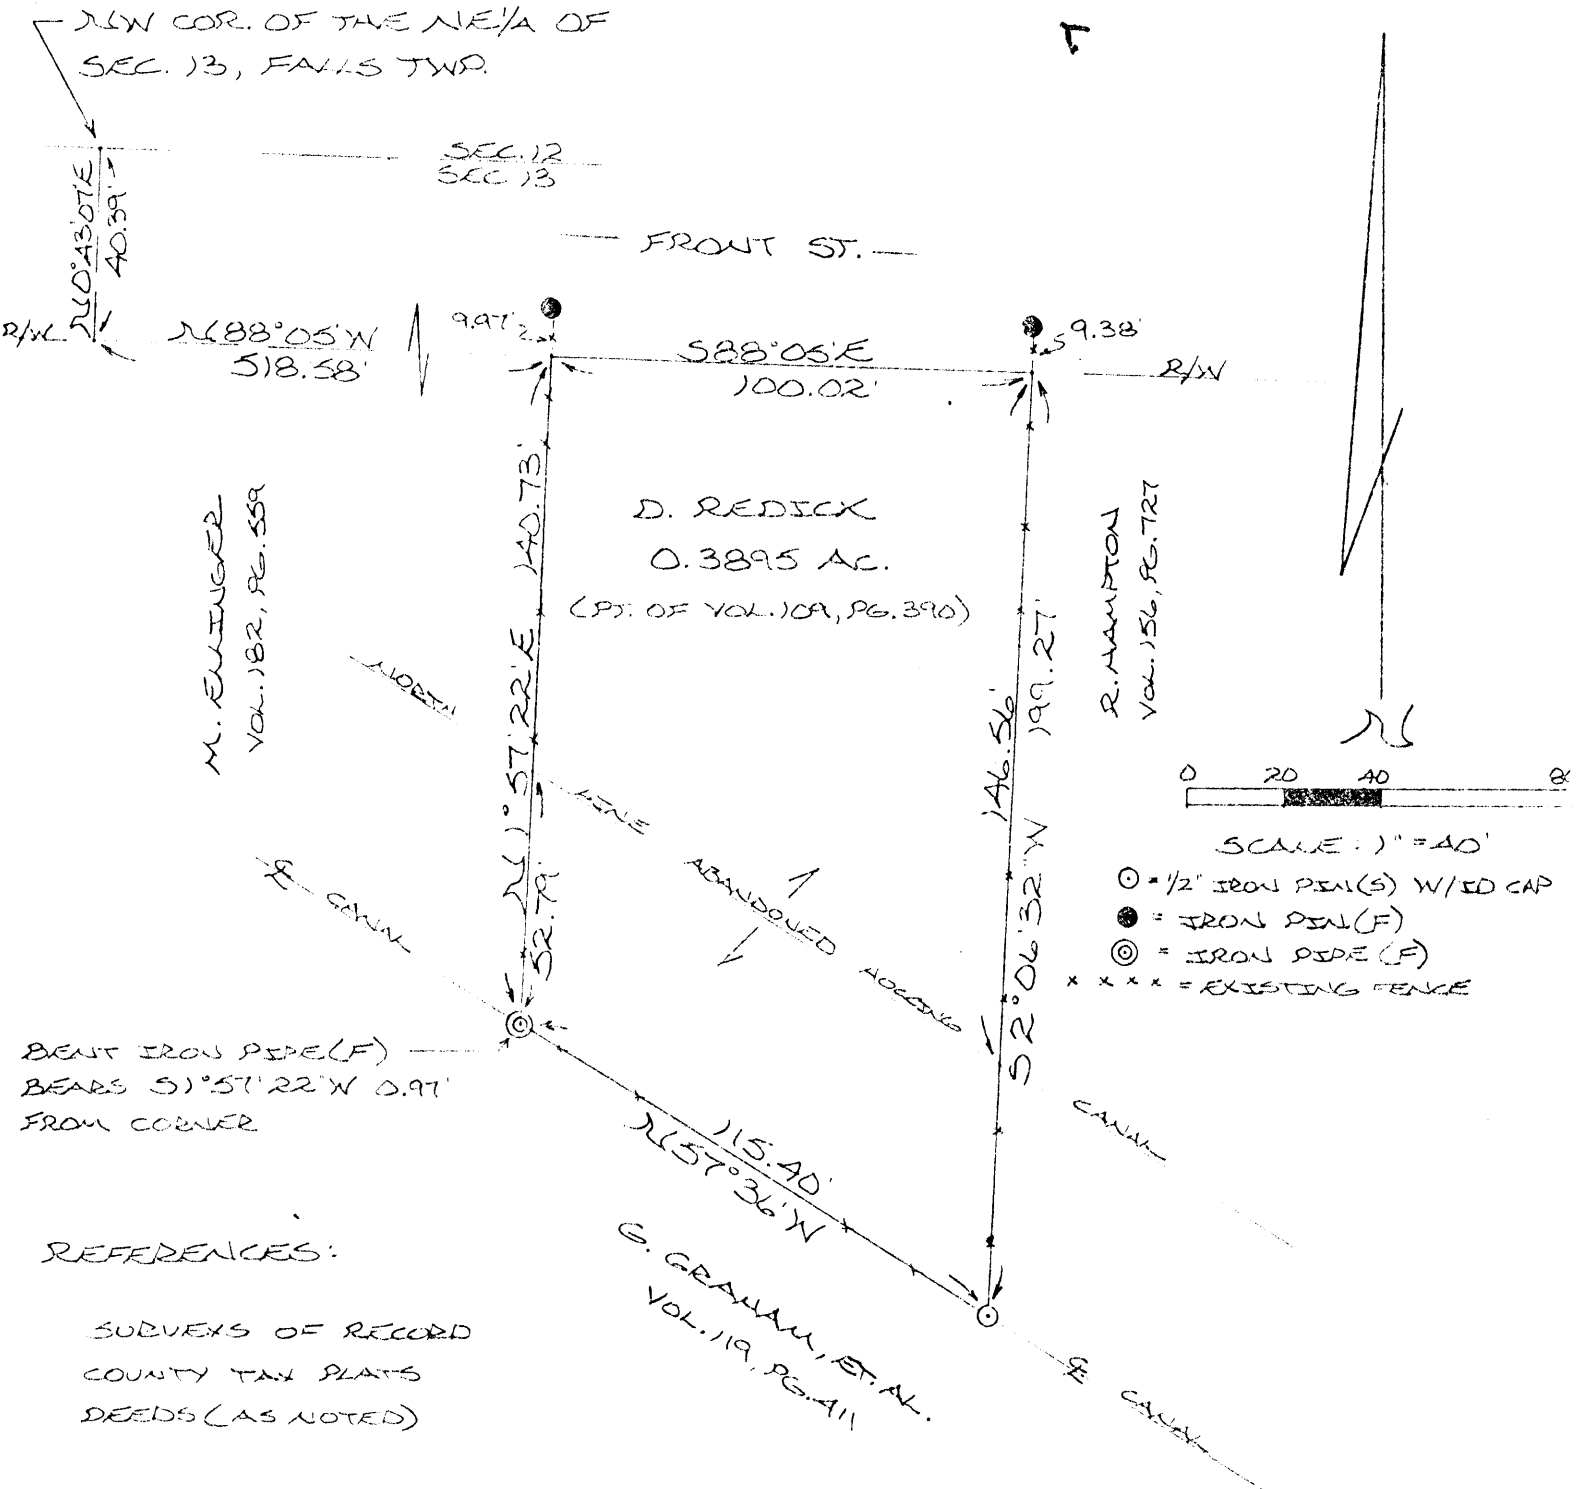 NW COR. OF THE NE1/4 OF
SEC. 13, FALLS TWP.
SEC. 12
SEC 13
N0°43'07"E
40.39'
FRONT ST.
R/W
N88°05'W
518.58'
9.97'
S88°05'E
100.02'
9.38'
R/W
M. ELLINGER
VOL. 182, PG. 559
N1°57'22"E 140.73'
52.79'
D. REDICK
0.3895 AC.
(PT. OF VOL. 109, PG. 390)
146.56'
S2°06'32"W 199.27'
R. HAMPTON
VOL. 156, PG. 727
N
NORTH LINE ABANDONED HOCKING CANAL
0 20 40 80
SCALE: 1" = 40'
= 1/2" IRON PIN(S) W/ID CAP
= IRON PIN(F)
= IRON PIPE(F)
x x x x = EXISTING FENCE
℄ CANAL
BENT IRON PIPE(F)
BEARS S1°57'22"W 0.97'
FROM CORNER
115.40'
N57°36'W
G. GRAHAM, ET. AL.
VOL. 119, PG. 411
℄ CANAL
REFERENCES:
SURVEYS OF RECORD
COUNTY TAX PLATS
DEEDS (AS NOTED)